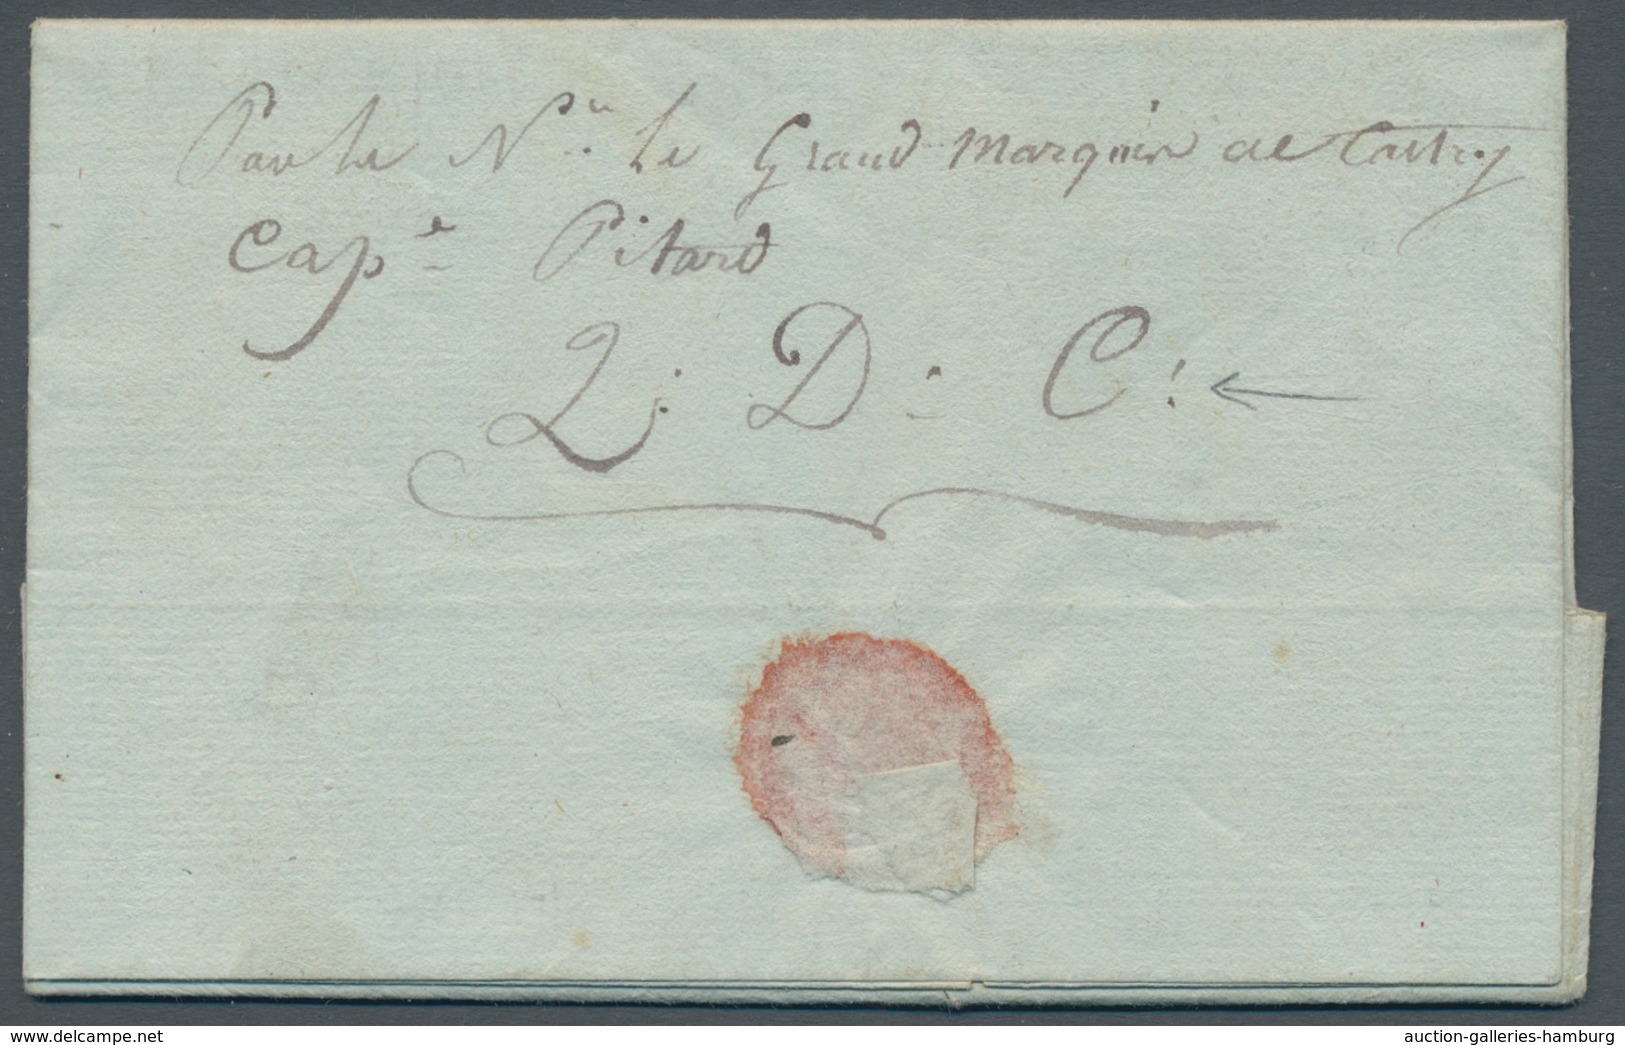 Par le N.re le Grand Marquis de Castry
Cape Pitard
2. D. C.
delcampe.net
auction-galleries-hamburg